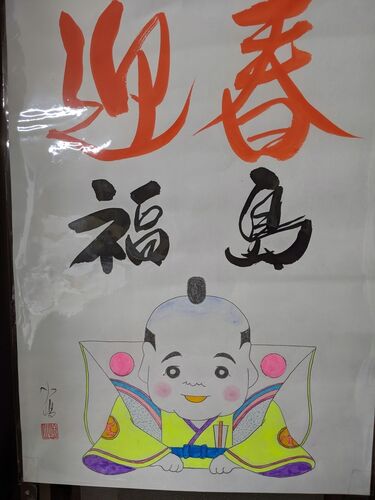 迎春
福島